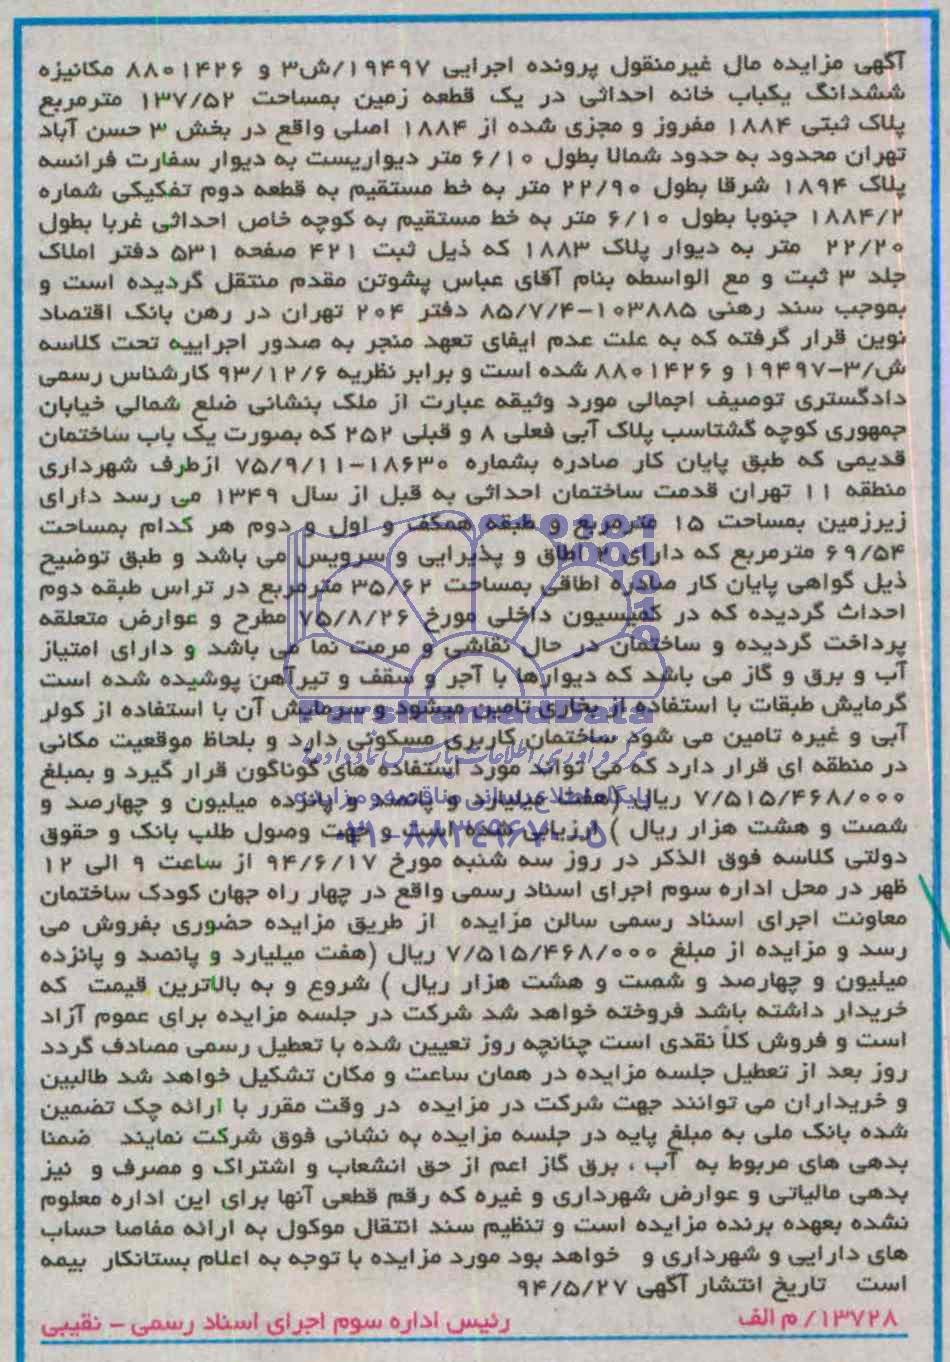 آگهی مزایده مال غیرمنقول پرونده اجرایی ۱۹۴۹۷/ش۳ و ۸۸۰۱۴۲۶ مکانیزه
ششدانگ یکباب خانه احداثی در یک قطعه زمین بمساحت ۱۳۷/۵۲ مترمربع
پلاک ثبتی ۱۸۸۴ مفروز و مجزی شده از ۱۸۸۴ اصلی واقع در بخش ۳ حسن آباد
تهران محدود به حدود شمالا بطول ۶/۱۰ متر دیواریست به دیوار سفارت فرانسه
پلاک ۱۸۹۴ شرقا بطول ۲۲/۹۰ متر به خط مستقیم به قطعه دوم تفکیکی شماره
۱۸۸۴/۲ جنوبا بطول ۶/۱۰ متر به خط مستقیم به کوچه خاص احداثی غربا بطول
۲۲/۲۰ متر به دیوار پلاک ۱۸۸۳ که ذیل ثبت ۴۲۱ صفحه ۵۳۱ دفتر املاک
جلد ۳ ثبت و مع الواسطه بنام آقای عباس پشوتن مقدم منتقل گردیده است و
بموجب سند رهنی ۱۰۳۸۸۵-۸۵/۷/۴ دفتر ۲۰۴ تهران در رهن بانک اقتصاد
نوین قرار گرفته که به علت عدم ایفای تعهد منجر به صدور اجراییه تحت کلاسه
ش/۳-۱۹۴۹۷ و ۸۸۰۱۴۲۶ شده است و برابر نظریه ۹۳/۱۲/۶ کارشناس رسمی
دادگستری توصیف اجمالی مورد وثیقه عبارت از ملک بنشانی ضلع شمالی خیابان
جمهوری کوچه گشتاسب پلاک آبی فعلی ۸ و قبلی ۲۵۲ که بصورت یک باب ساختمان
قدیمی که طبق پایان کار صادره بشماره ۱۸۶۳۰-۷۵/۹/۱۱ ازطرف شهرداری
منطقه ۱۱ تهران قدمت ساختمان احداثی به قبل از سال ۱۳۴۹ می رسد دارای
زیرزمین بمساحت ۱۵ مترمربع و طبقه همکف و اول و دوم هر کدام بمساحت
۶۹/۵۴ مترمربع که دارای ۲ اطاق و پذیرایی و سرویس می باشد و طبق توضیح
ذیل گواهی پایان کار صادره اطاقی بمساحت ۳۵/۶۲ مترمربع در تراس طبقه دوم
احداث گردیده که در کمیسیون داخلی مورخ ۷۵/۸/۲۶ مطرح و عوارض متعلقه
پرداخت گردیده و ساختمان در حال نقاشی و مرمت نما می باشد و دارای امتیاز
آب و برق و گاز می باشد که دیوارها با آجر و سقف و تیرآهن پوشیده شده است
گرمایش طبقات با استفاده از بخاری تامین میشود و سرمایش آن با استفاده از کولر
آبی و غیره تامین می شود ساختمان کاربری مسکونی دارد و بلحاظ موقعیت مکانی
در منطقه ای قرار دارد که می تواند مورد استفاده های گوناگون قرار گیرد و بمبلغ
۷/۵۱۵/۴۶۸/۰۰۰ ریال (هفت میلیارد و پانصد و پانزده میلیون و چهارصد و
شصت و هشت هزار ریال ) ارزیابی شده است و جهت وصول طلب بانک و حقوق
دولتی کلاسه فوق الذکر در روز سه شنبه مورخ ۹۴/۶/۱۷ از ساعت ۹ الی ۱۲
ظهر در محل اداره سوم اجرای اسناد رسمی واقع در چهار راه جهان کودک ساختمان
معاونت اجرای اسناد رسمی سالن مزایده از طریق مزایده حضوری بفروش می
رسد و مزایده از مبلغ ۷/۵۱۵/۴۶۸/۰۰۰ ریال (هفت میلیارد و پانصد و پانزده
میلیون و چهارصد و شصت و هشت هزار ریال ) شروع و به بالاترین قیمت که
خریدار داشته باشد فروخته خواهد شد شرکت در جلسه مزایده برای عموم آزاد
است و فروش کلاً نقدی است چنانچه روز تعیین شده با تعطیل رسمی مصادف گردد
روز بعد از تعطیل جلسه مزایده در همان ساعت و مکان تشکیل خواهد شد طالبین
و خریداران می توانند جهت شرکت در مزایده در وقت مقرر با ارائه چک تضمین
شده بانک ملی به مبلغ پایه در جلسه مزایده به نشانی فوق شرکت نمایند ضمنا
بدهی های مربوط به آب ، برق گاز اعم از حق انشعاب و اشتراک و مصرف و نیز
بدهی مالیاتی و عوارض شهرداری و غیره که رقم قطعی آنها برای این اداره معلوم
نشده بعهده برنده مزایده است و تنظیم سند انتقال موکول به ارائه مفاصا حساب
های دارایی و شهرداری و خواهد بود مورد مزایده با توجه به اعلام بستانکار بیمه
است تاریخ انتشار آگهی ۹۴/۵/۲۷
۱۳۷۲۸/ م الف رئیس اداره سوم اجرای اسناد رسمی - نقیبی
ParsNamadData
پایگاه اطلاع رسانی مناقصه و مزایده
۰۲۱-۸۸۳۴۹۶۷۰-۵